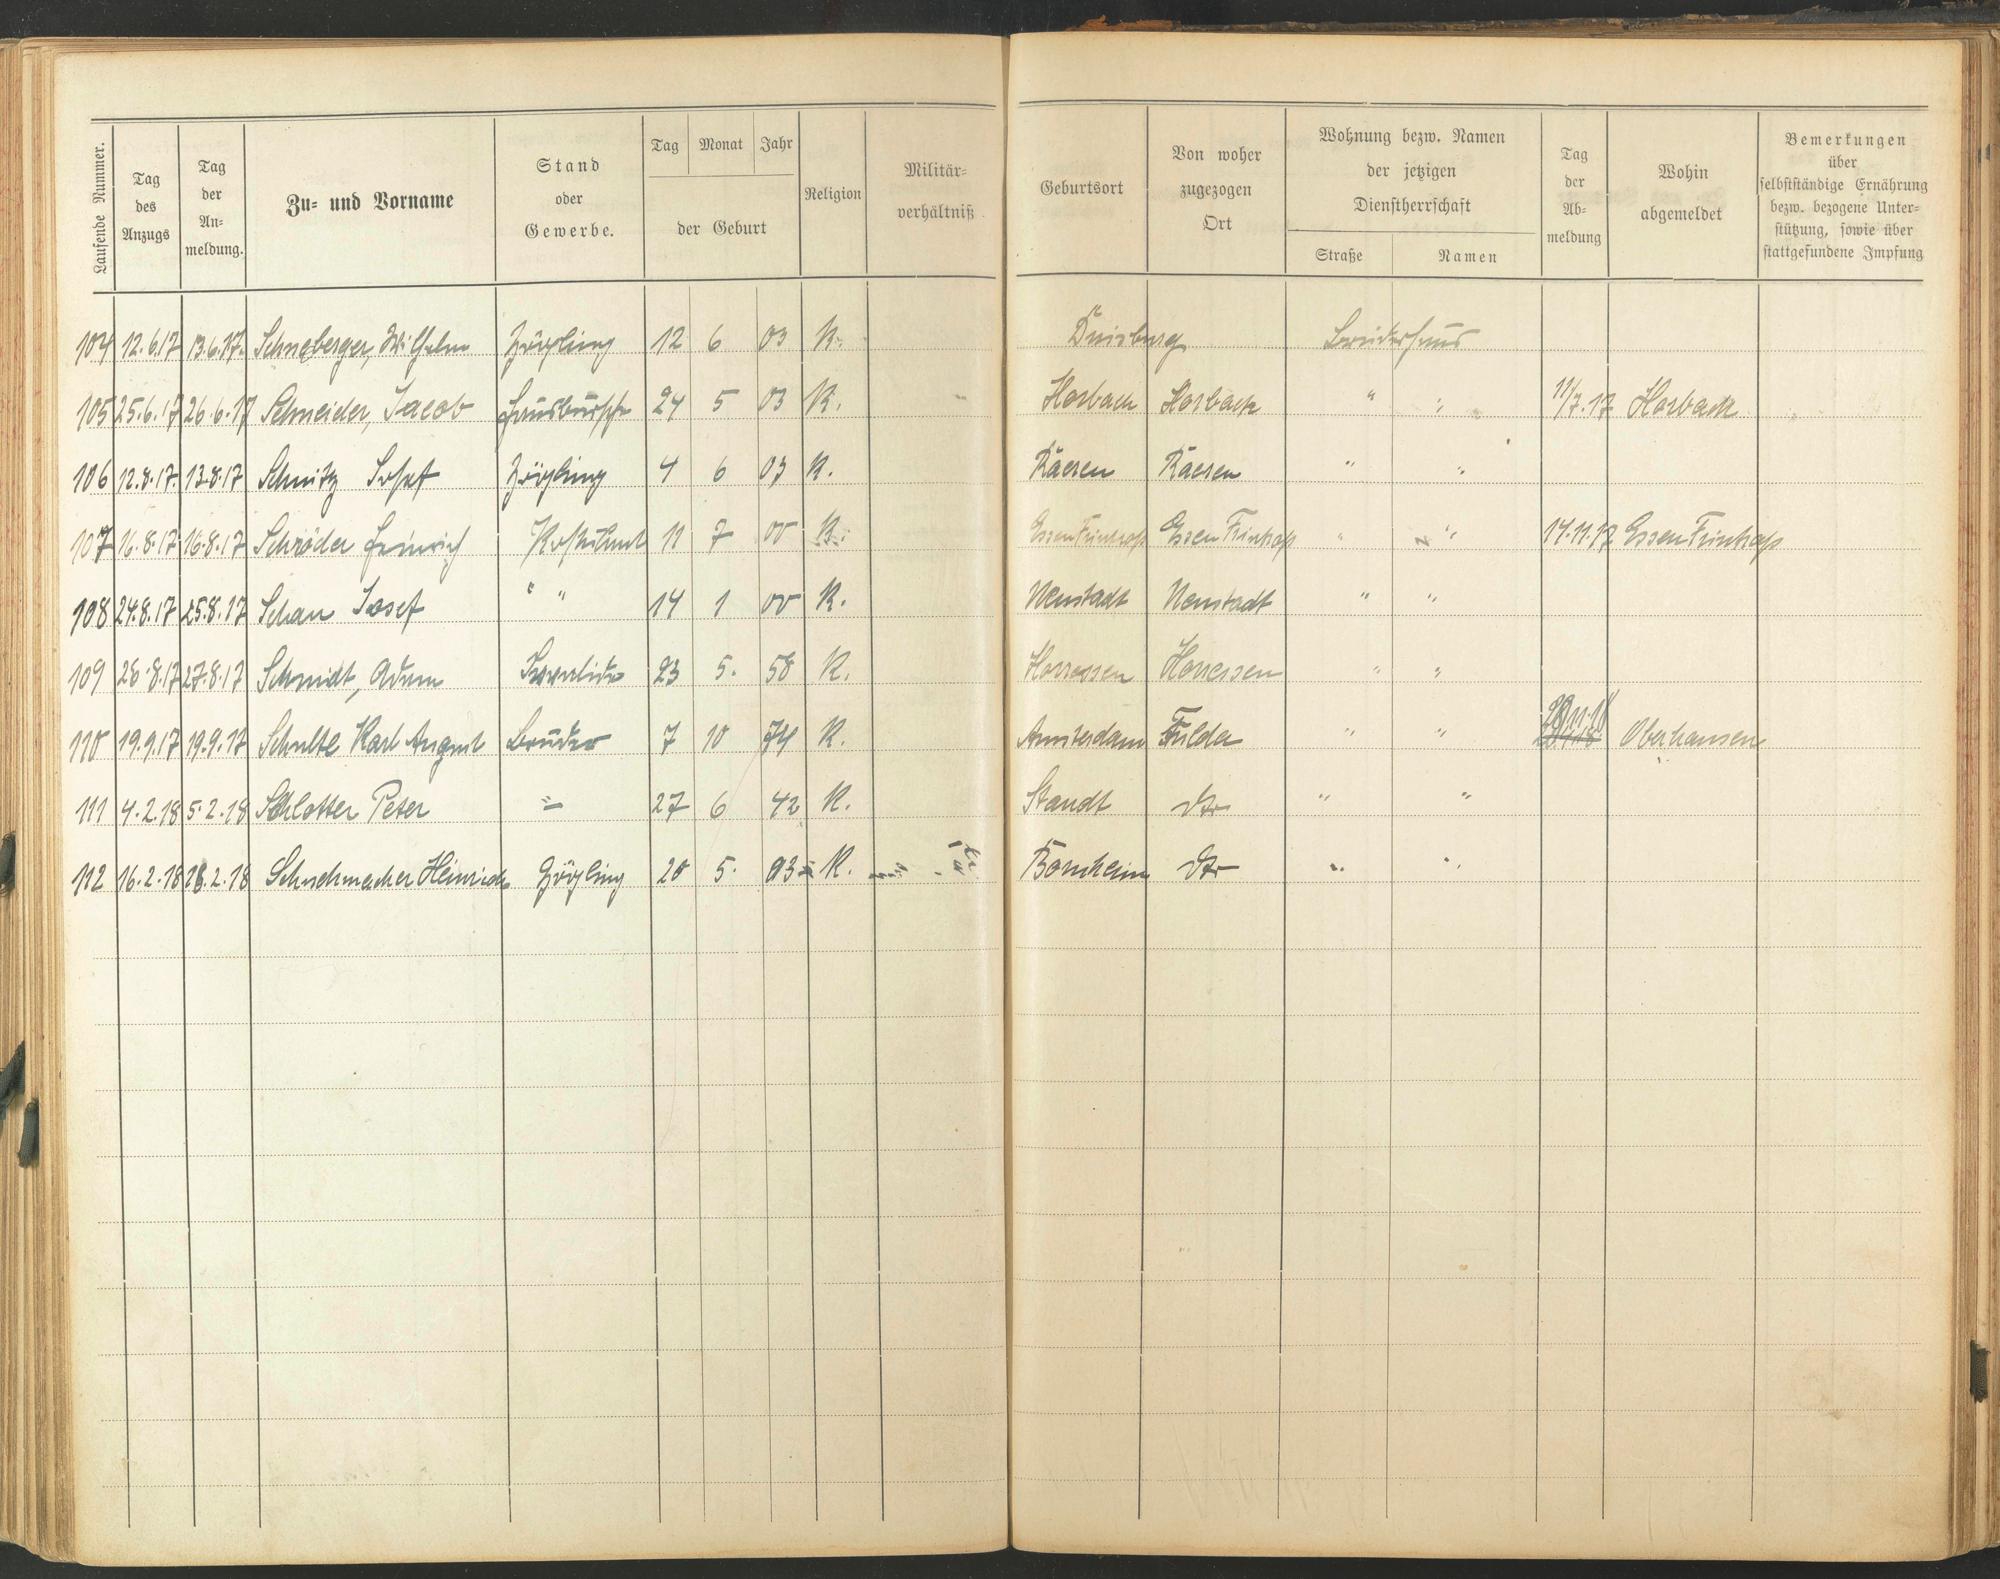 Laufende Nummer.
Tag des Anzugs
Tag der An-meldung.
Zu- und Vorname
Stand oder Gewerbe.
Tag Monat Jahr
der Geburt
Religion
Militär-verhältniß
Geburtsort
Von woher zugezogen Ort
Wohnung bezw. Namen der jetzigen Dienstherrschaft
Straße Namen
Tag der Ab-meldung
Wohin abgemeldet
Bemerkungen über selbstständige Ernährung bezw. bezogene Unter-stützung, sowie über stattgefundene Impfung
104 12.6.17 13.6.17. Schneberger, Wilhelm Zögling 12 6 03 K. Duisburg Bruderhaus
105 25.6.17 26.6.17 Schneider, Jacob Hausbursche 24 5 03 K. Horbach Horbach " " 11/7.17 Horbach
106 12.8.17. 13.8.17 Schmitz Josef Zögling 4 6 03 K. Raeren Raeren " "
107 16.8.17 16.8.17 Schröder Heinrich 11 7 00 K. Essen Frintrop Essen Frintrop " " 14.11.17 Essen Frintrop
108 24.8.17 25.8.17 Schan Josef " " 14 1 00 K. Neustadt Neustadt " "
109 26.8.17 27.8.17 Schmidt, Adam Invalide 23 5. 58 K. Horressen Horressen " "
110 19.9.17 19.9.17 Schulte Karl August Bruder 7 10 74 K. Amsterdam Fulda " " Oberhausen
111 4.2.18 5.2.18 Schlotter Peter " 27 6 42 K. Standt dto " "
112 16.2.18 18.2.18 Schuhmacher Heinrich Zögling 20 5. 03 K. Bornheim dto " "